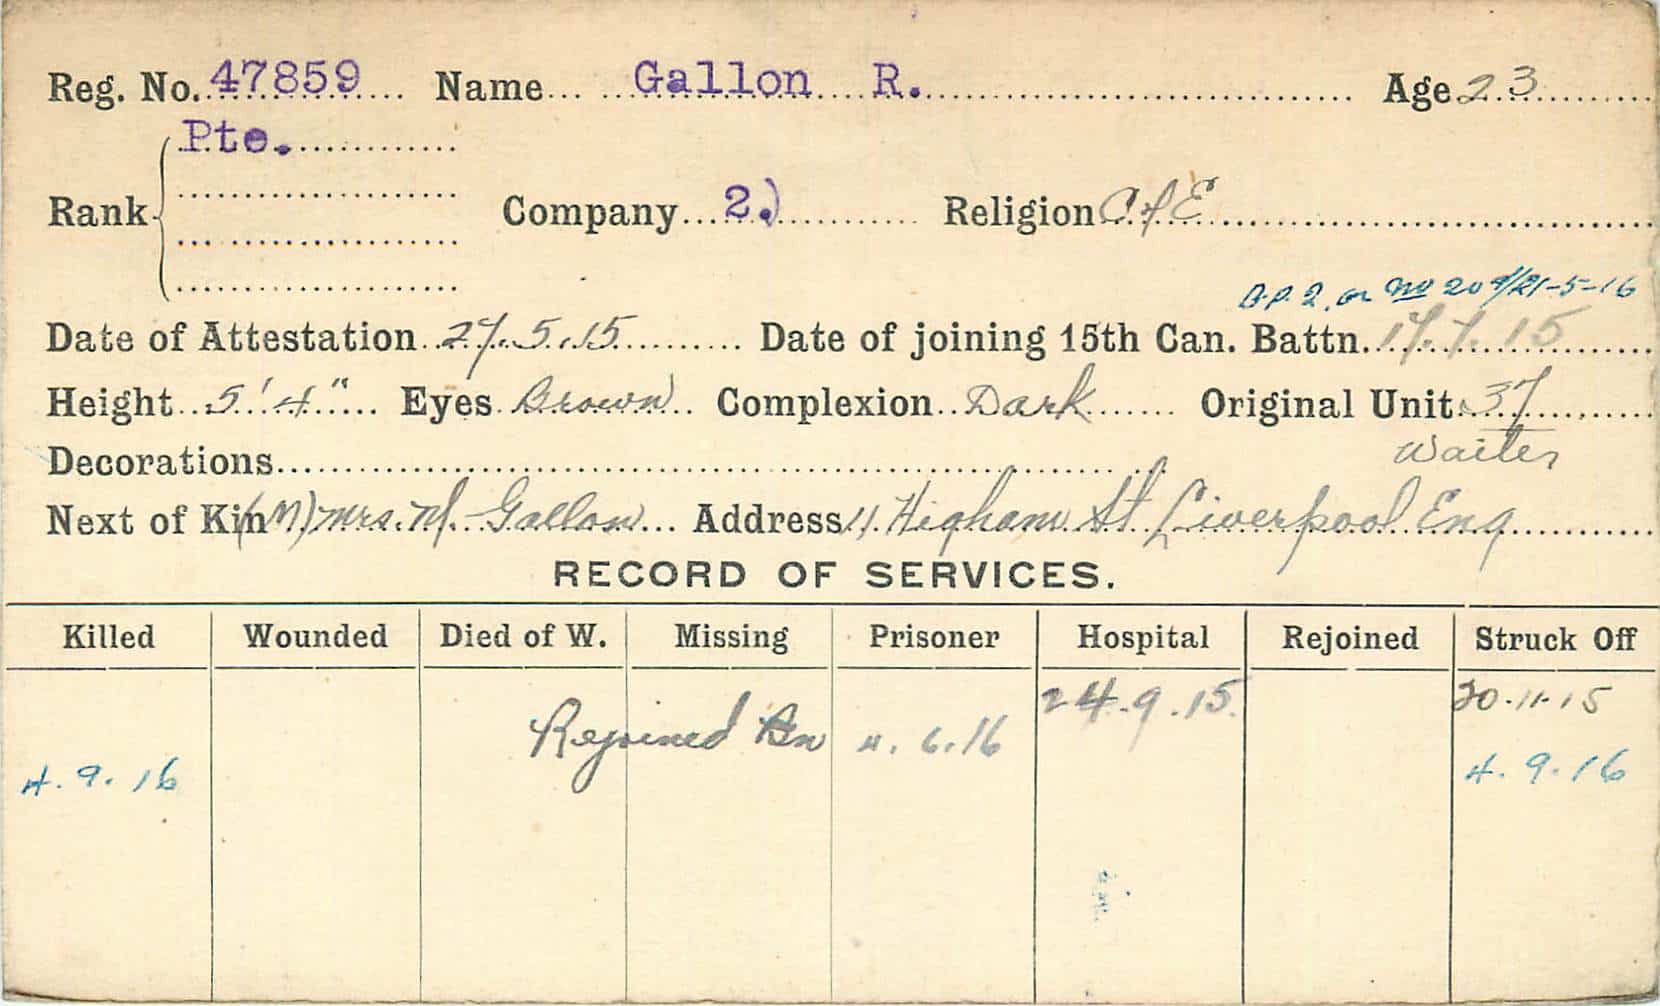 Reg. No. 47859 Name Gallon R. Age 23
Pte.
Rank Company 2. Religion C of E
D.P. 2. or No 20 21-5-16
Date of Attestation 27.5.15 Date of joining 15th Can. Battn. 17.7.15
Height 5'4" Eyes Brown Complexion Dark Original Unit 37
Decorations Waiter
Next of Kin (M) Mrs. M. Gallon Address 11 Higham St Liverpool Eng
RECORD OF SERVICES.
Killed Wounded Died of W. Missing Prisoner Hospital Rejoined Struck Off
24.9.15 20.11.15
Rejoined Bn 11.6.16
4.9.16 4.9.16